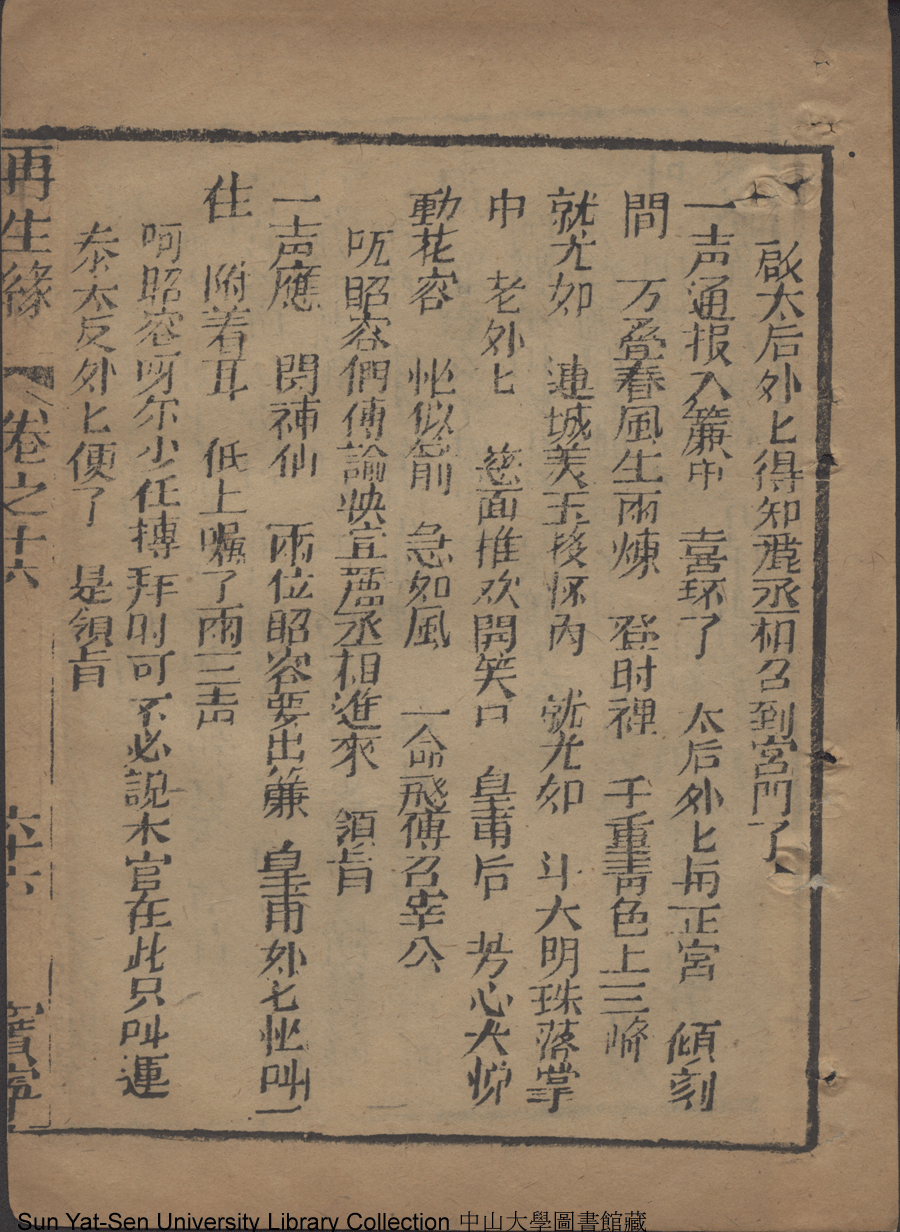 啟太后外匕得知酈丞相召到宮門了
一声通报入簾中　喜坏了　太后外匕与正宮　傾刻
間　万疊春風生兩煉　登时裡　千重青色上三峰
就尤如　連城美玉投怀內　就尤如　斗大明珠落掌
中　老外匕　慈面推欢開笑口　皇甫后　芳心大悅
動花容　怭似箭　急如風　一命飛傳召宰公
呒昭容們傳諭快宣酈丞相進來　領旨
一声應　閃神仙　兩位昭容要出簾　皇甫外七怭叫一
住　附着耳　低上囑了兩三声
呵昭容呀尔少仼摶拜时可不必說木官在此只叫連
泰太反外匕便了　是領旨
再生緣　卷之十六　六十六　寶寧
Sun Yat-Sen University Library Collection 中山大學圖書館藏